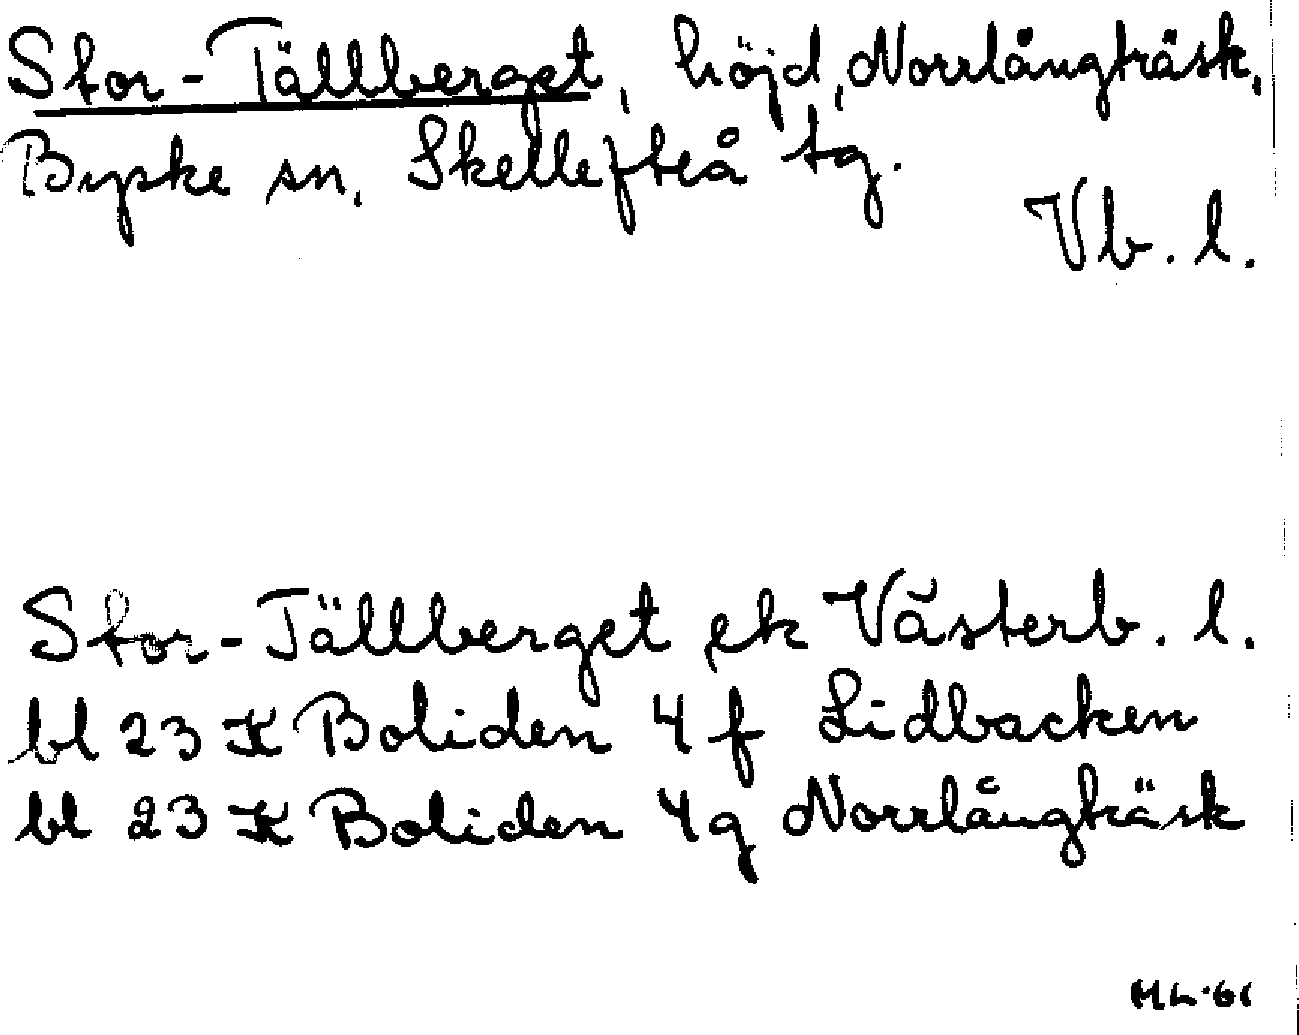 Stor-Tällberget, höjd, Norrlångträsk,
Byske sn. Skellefteå tg.
Vb. l.
Stor-Tällberget ek Västerb. l.
bl 23 K Boliden 4 f Lidbacken
bl 23 K Boliden 4g Norrlångträsk
HL·61